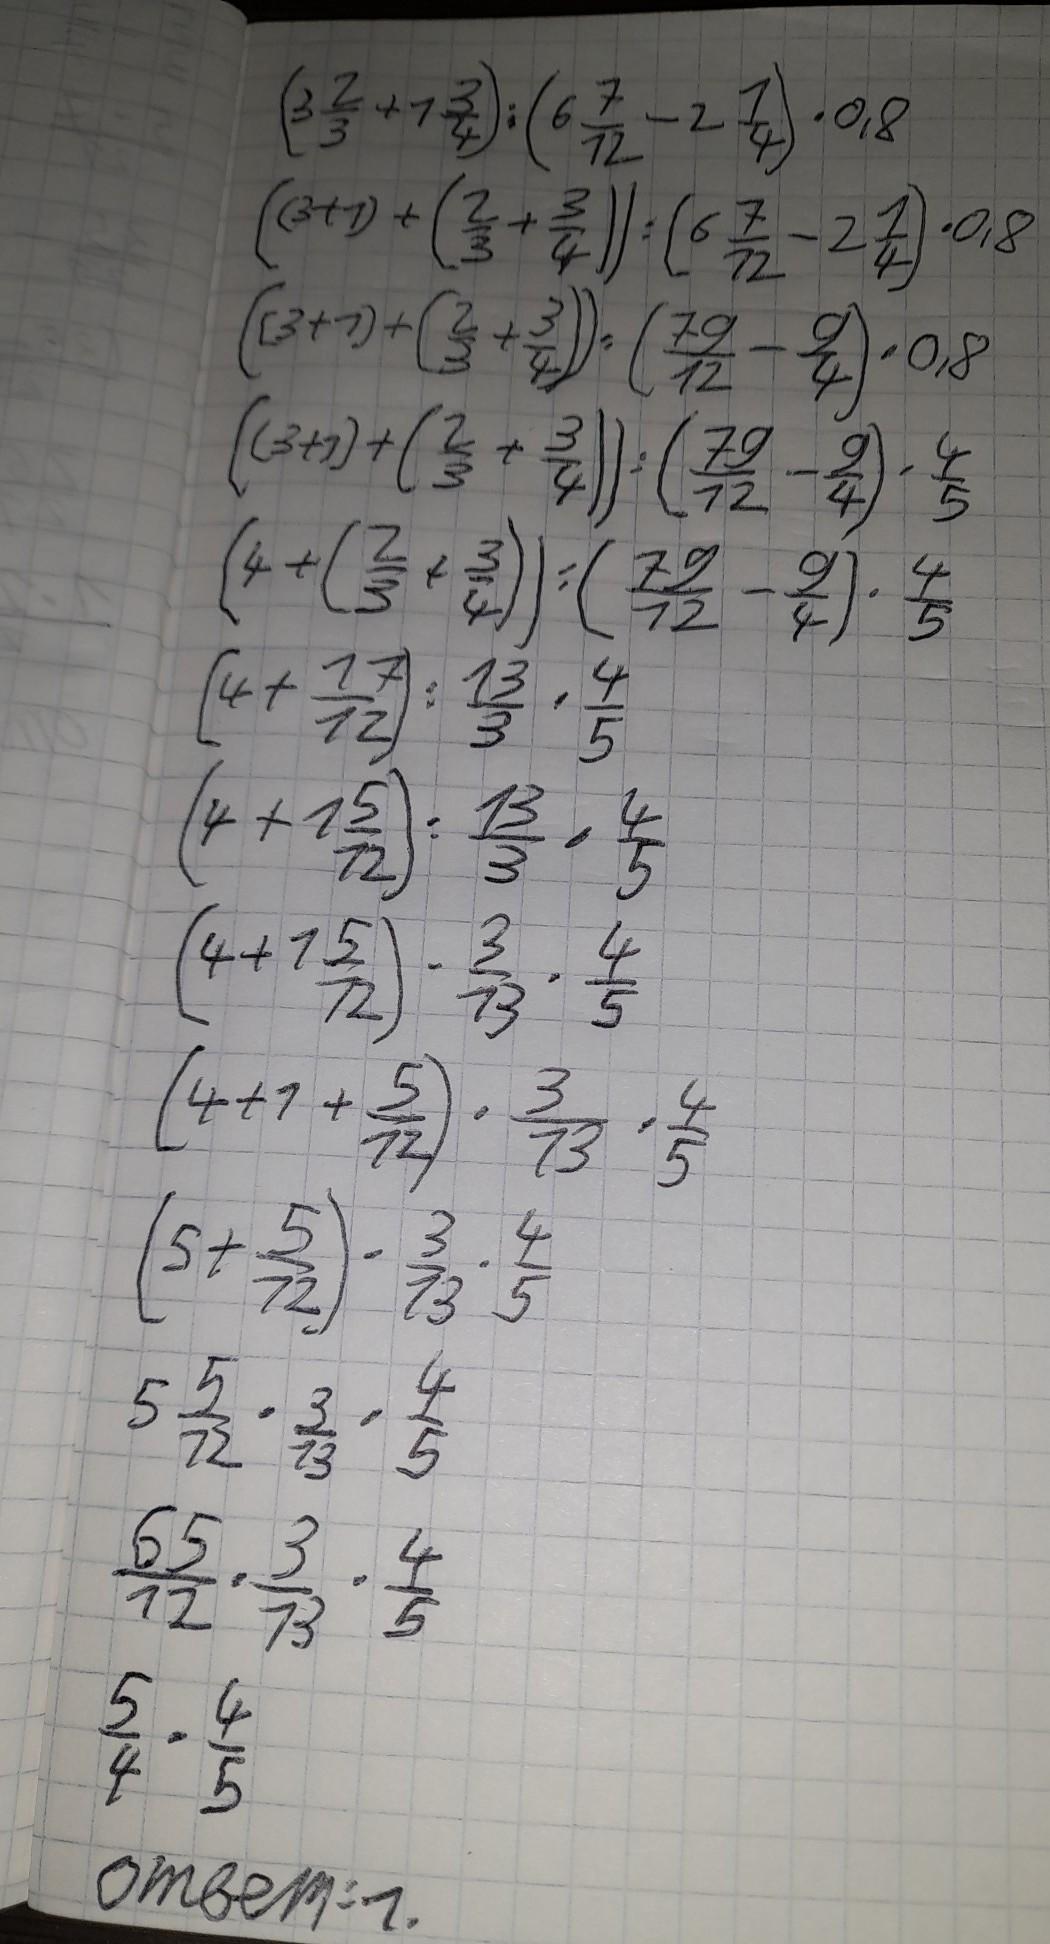 (3 2/3 + 1 3/4) : (6 7/12 − 2 1/4) · 0,8
((3+1) + (2/3 + 3/4)) : (6 7/12 − 2 1/4) · 0,8
((3+1) + (2/3 + 3/4)) : (79/12 − 9/4) · 0,8
((3+1) + (2/3 + 3/4)) : (79/12 − 9/4) · 4/5
(4 + (2/3 + 3/4)) : (79/12 − 9/4) · 4/5
(4 + 17/12) : 13/3 · 4/5
(4 + 1 5/12) : 13/3 · 4/5
(4 + 1 5/12) · 3/13 · 4/5
(4 + 1 + 5/12) · 3/13 · 4/5
(5 + 5/12) · 3/13 · 4/5
5 5/12 · 3/13 · 4/5
65/12 · 3/13 · 4/5
5/4 · 4/5
ответ: 1.